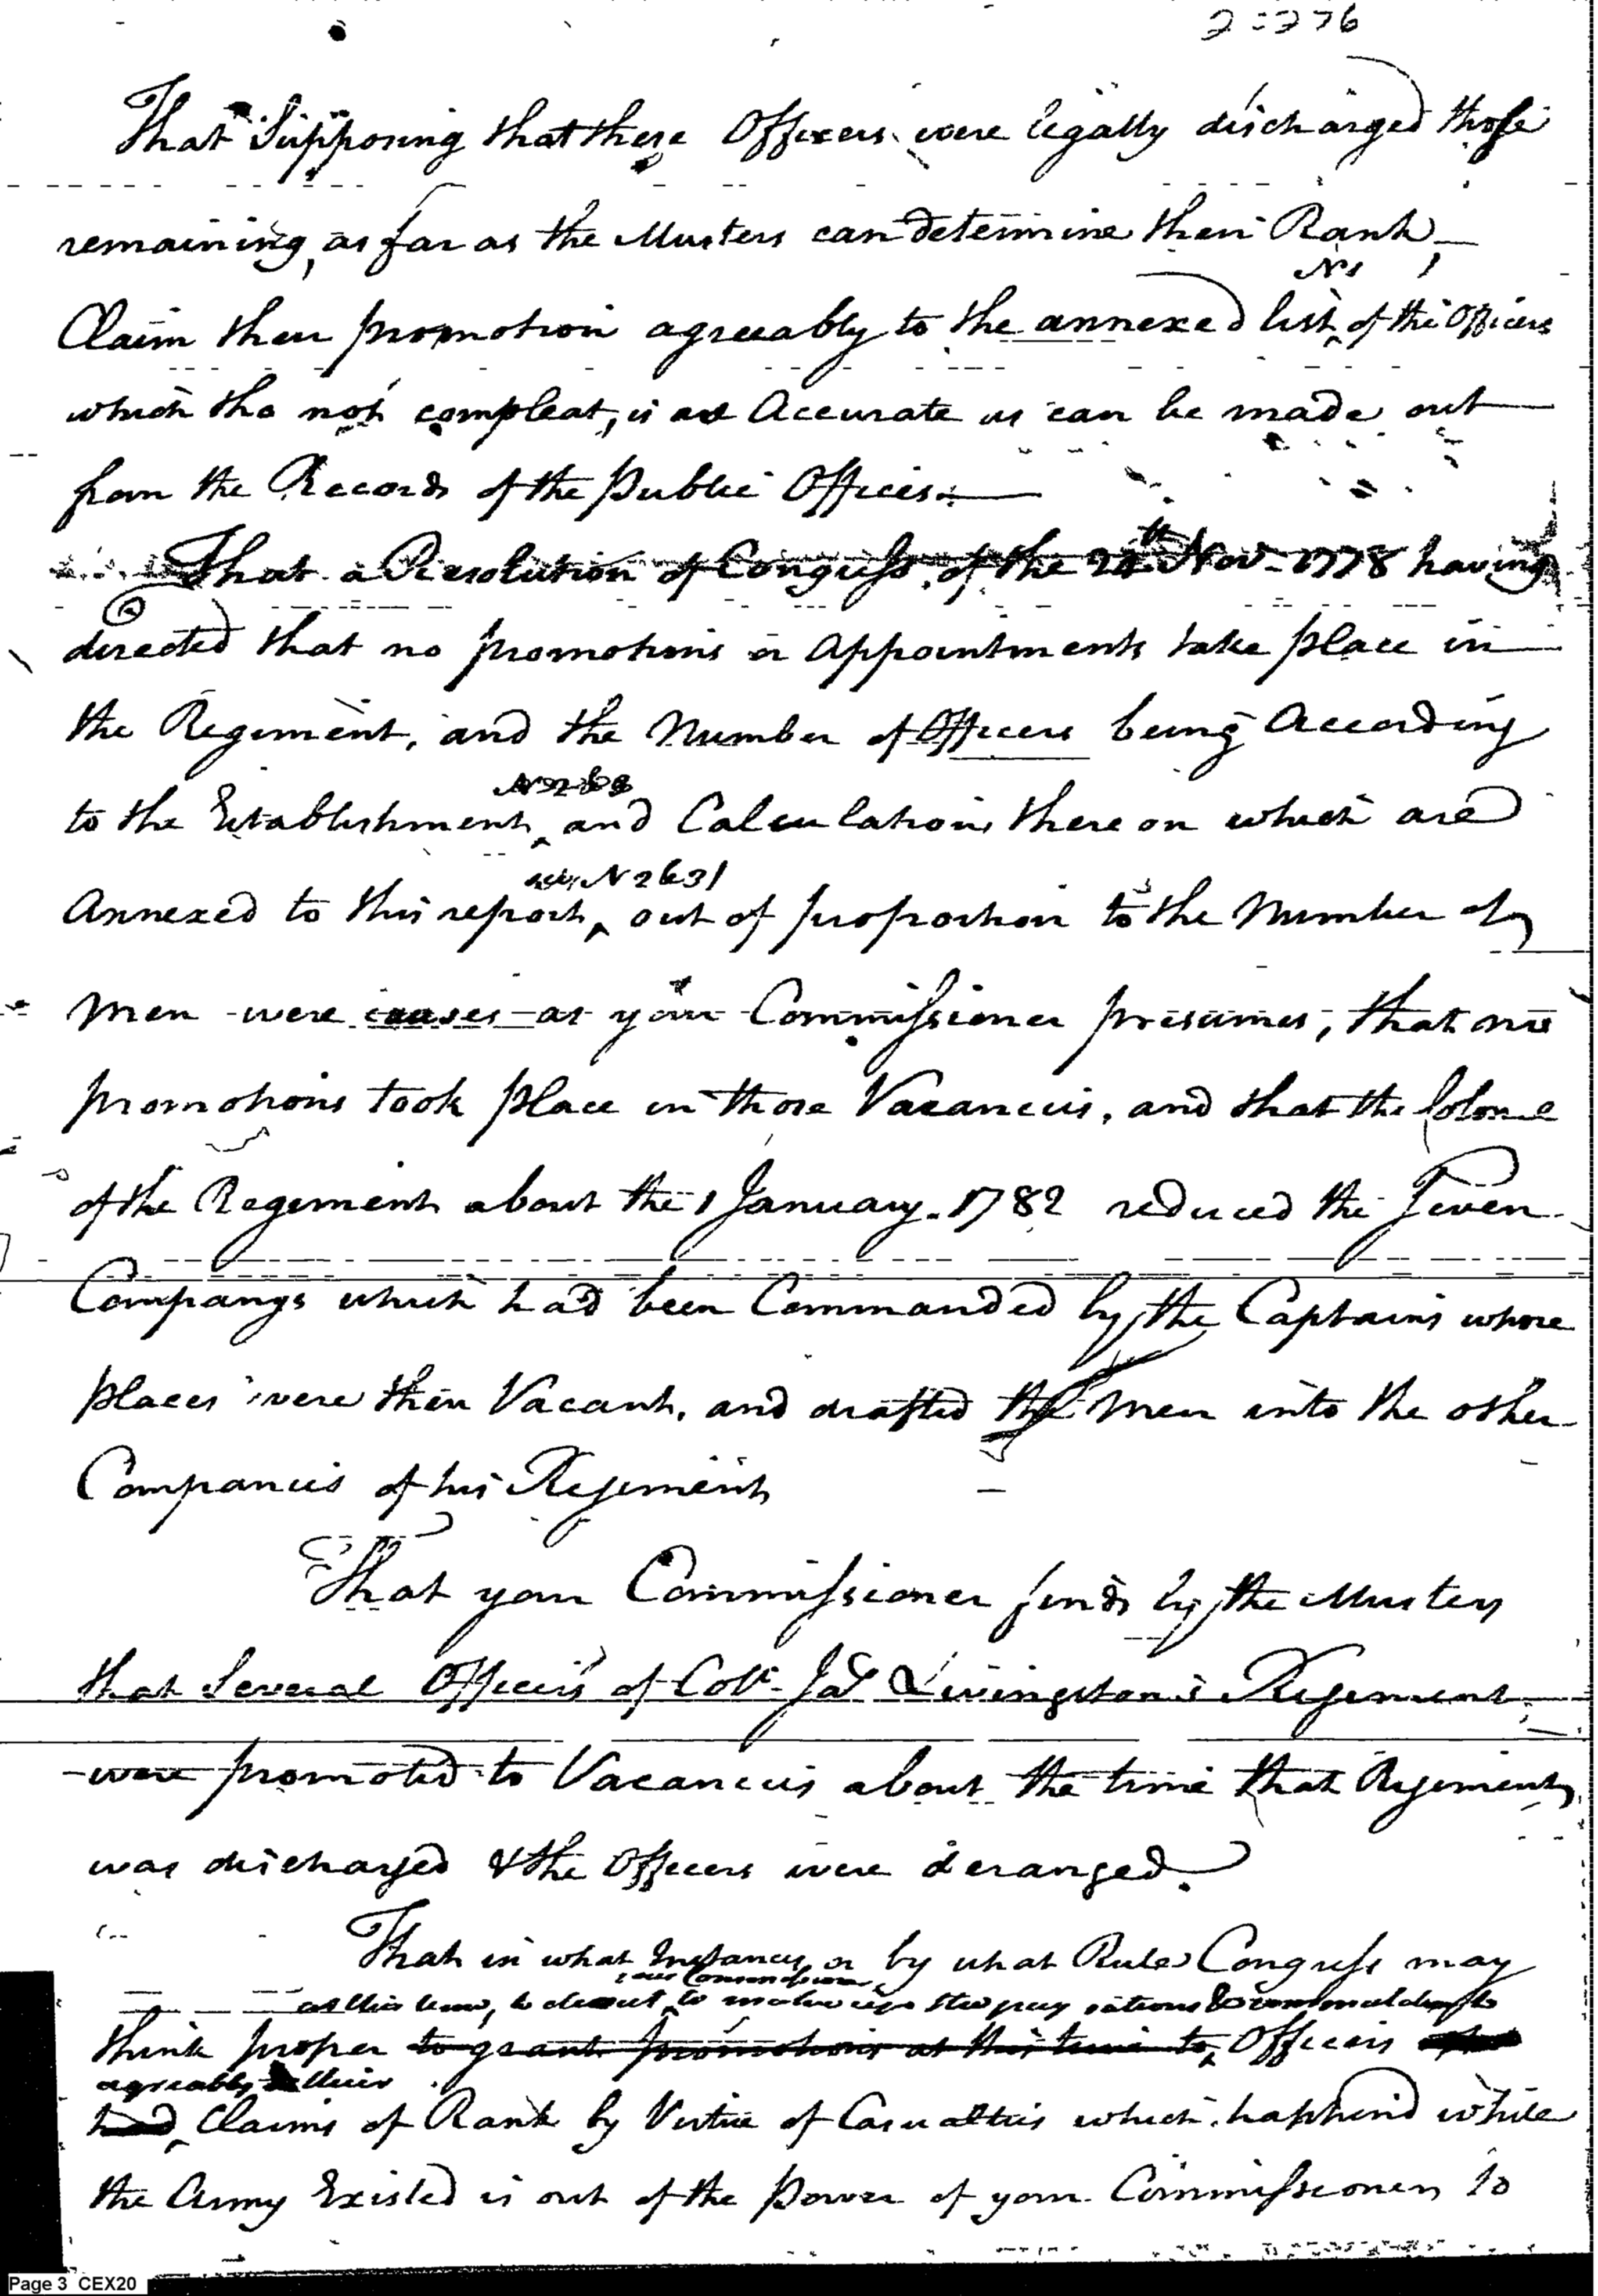 2=276
That Supposing that these Officers were legally discharged those
remaining, as far as the Musters can determine their Rank,
N1
Claim their promotion agreeably to the annexed list, of the Officers
which tho not compleat, is as Accurate as can be made out
from the Records of the Public Offices.
That a Resolution of Congress of the 24th Nov. 1778 having
directed that no promotions or Appointments take place in
the Regiment, and the Number of Officers being According
to the Establishment and Calculations there on which are
N 2 & 3
Annexed to this report, out of proportion to the Number of
Men were causes as your Commissioner presumes, that no
promotions took place in those Vacancies, and that the Colonel
of the Regiment about the 1 January 1782 reduced the Seven
Companys which had been Commanded by the Captains whose
places were then Vacant, and drafted the Men into the other
Companies of his Regiment
That your Commissioner finds by the Musters
that Several Officers of Coll. Jas Livingstons Regiment
were promoted to Vacancies about the time that Regiment
was discharged & the Officers were deranged.
That in what Instances or by what Rule Congress may
at this time, to direct to make up the pay rations &
think proper to grant promotions at this time to Officers
agreably to their
had Claims of Rank by Virtue of Casualties which happend while
the Army Existed is out of the Power of your Commissioner to
Page 3 CEX20